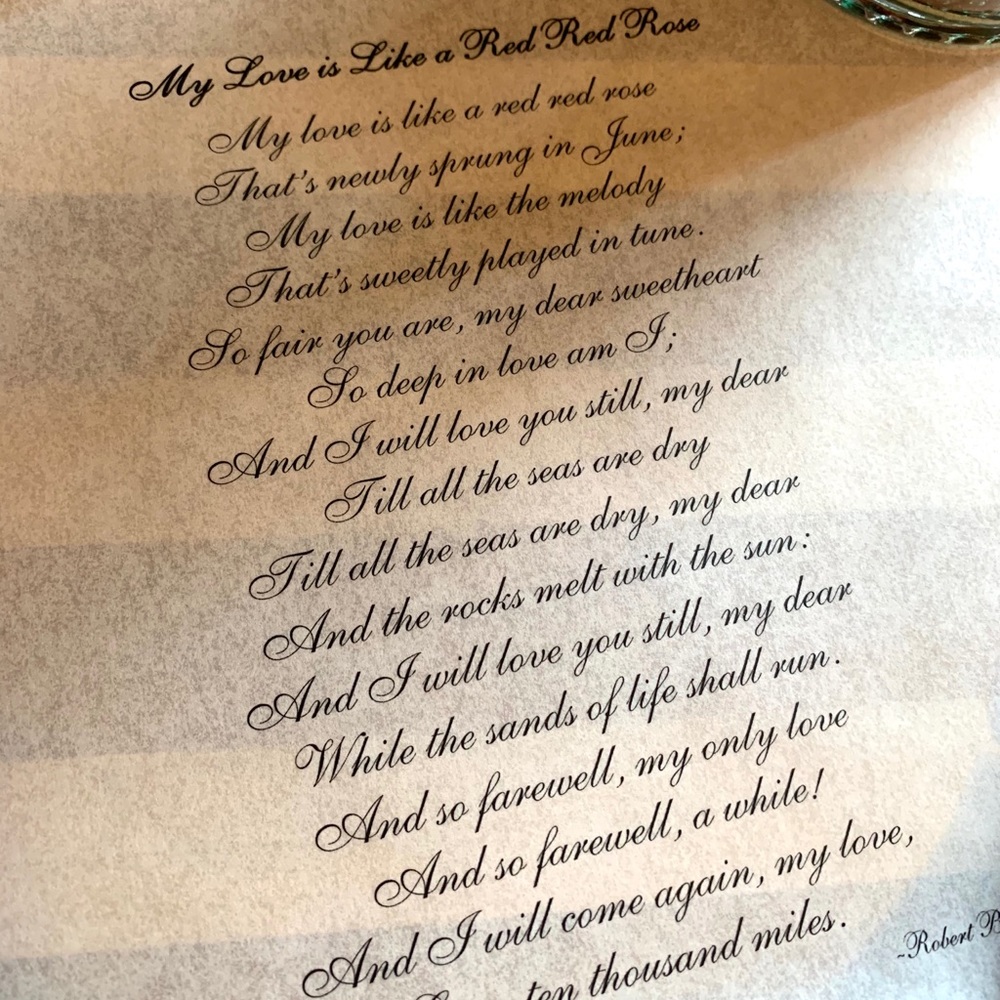 My Love is Like a Red Red Rose
My love is like a red red rose
That's newly sprung in June;
My love is like the melody
That's sweetly played in tune.
So fair you are, my dear sweetheart
So deep in love am I;
And I will love you still, my dear
Till all the seas are dry
Till all the seas are dry, my dear
And the rocks melt with the sun:
And I will love you still, my dear
While the sands of life shall run.
And so farewell, my only love
And so farewell, a while!
And I will come again, my love,
ten thousand miles.
~Robert B